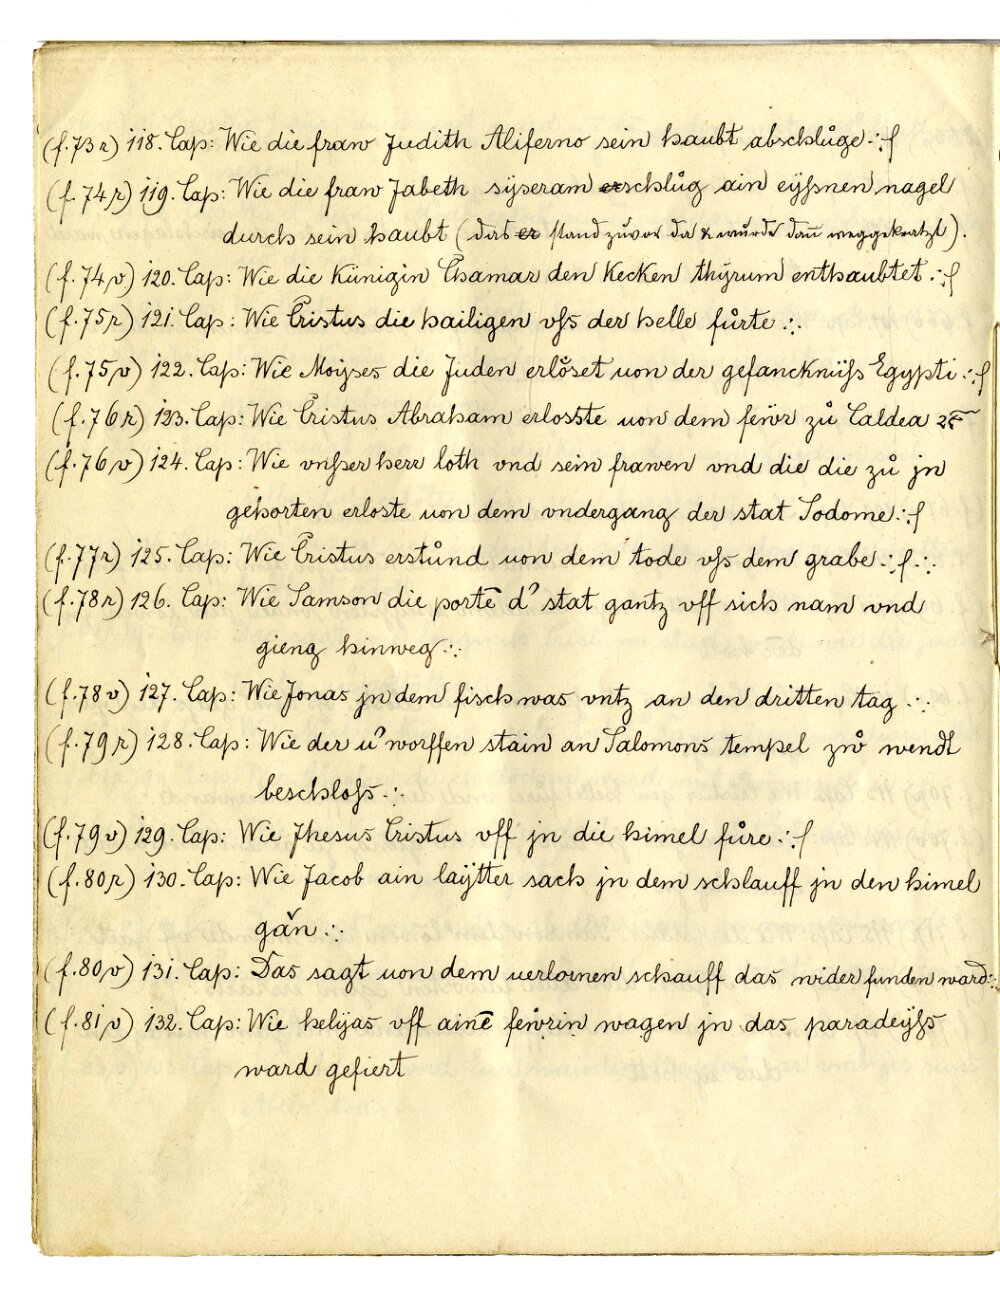 (f.73r) 118. Cap: Wie die fraw Judith Aliferno sein haubt abschlůge .:f
(f.74r) 119. Cap: Wie die fraw Jabeth sÿseram er schlůg ain eÿßnen nagel
durch sein haubt (das er stand zuvor da & wurde dann weggekratzt).
(f.74v) 120. Cap: Wie die Künigin Thamar den Kecken thÿrum enthaubtet .:f
(f.75r) 121. Cap: Wie Cristus die hailigen vſs der helle fůrte .:.
(f.75v) 122. Cap: Wie Moÿses die Juden erlőset uon der gefancknüſs Egypti .:f
(f.76r) 123. Cap: Wie Cristus Abraham erlosste uon dem fewr zů Caldea
(f.76v) 124. Cap: Wie vnſser herr loth vnd sein frawen vnd die die zů jn
gehorten erloste uon dem vndergang der stat Sodome .:f
(f.77r) 125. Cap: Wie Cristus erstůnd uon dem tode vſs dem grabe .:f.:.
(f.78r) 126. Cap: Wie Samson die portē d' stat gantz vff sich nam vnd
gieng hinweg .:.
(f.78v) 127. Cap: Wie Jonas jn dem fisch was vntz an den dritten tag .:.
(f.79r) 128. Cap: Wie der u'worffen stain an Salomons tempel zwů wendt
beschloſs .:.
(f.79v) 129. Cap: Wie Jhesus Cristus vff jn die himel fůre .:f
(f.80r) 130. Cap: Wie Jacob ain laÿtter sach jn dem schlauff jn den himel
gǎn .:.
(f.80v) 131. Cap: Das sagt uon dem uerlornen schauff das wider funden ward .:.
(f.81v) 132. Cap: Wie helÿas vff ainē fewrin wagen jn das paradeÿſs
ward gefiert